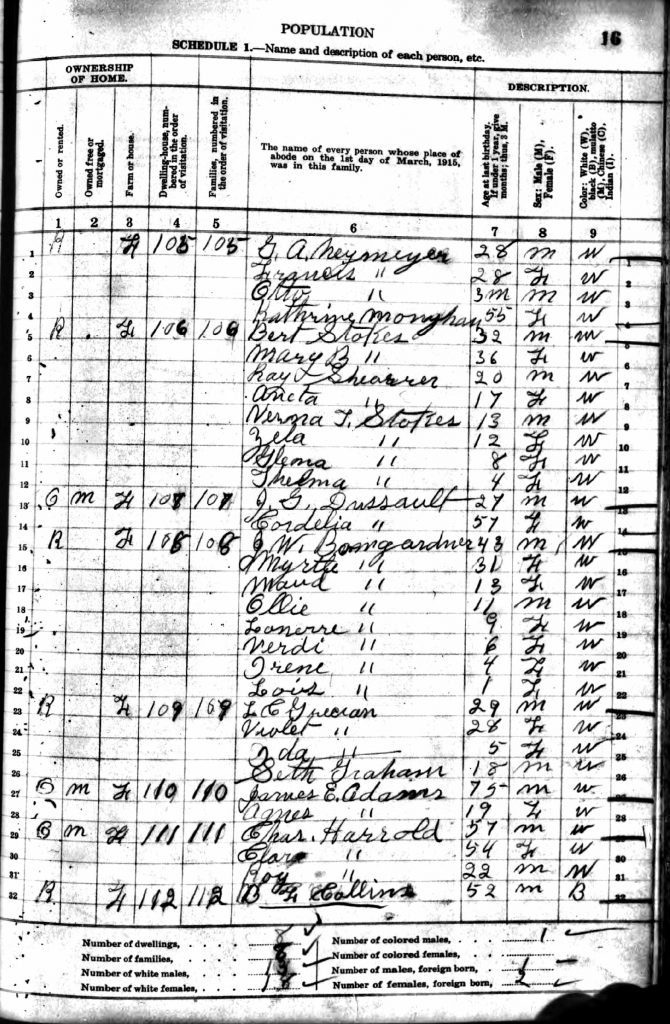 POPULATION
16
SCHEDULE 1.—Name and description of each person, etc.
OWNERSHIP OF HOME.
DESCRIPTION.
Owned or rented.
Owned free or mortgaged.
Farm or house.
Dwelling-house, numbered in the order of visitation.
Families, numbered in the order of visitation.
The name of every person whose place of abode on the 1st day of March, 1915, was in this family.
Age at last birthday. If under 1 year, give months; thus, 3 M.
Sex: Male (M), Female (F).
Color: White (W), black (B), mulatto (M), Chinese (C), Indian (I).
1 2 3 4 5 6 7 8 9
1 R F 105 105 G. A. Neymeyer 28 m w 1
2 Francis " 28 F w 2
3 Otto " 3m m w 3
4 Kathrine Monyhan 55 F w 4
5 R F 106 106 Bert Stokes 32 m w 5
6 Mary B " 36 F w 6
7 Ray Shearrer 20 m w 7
8 Aneta " 17 F w 8
9 Verma F. Stokes 13 m w 9
10 Zela " 12 F w 10
11 Glema " 8 F w 11
12 Thelma " 4 F w
13 O m F 107 107 J. G. Dussault 27 m w 13
14 Cordelia " 57 F w 14
15 R F 108 108 J. W. Bomgardner 43 m w 15
16 Myrtle " 31 F w 16
17 Maud " 13 F w 17
18 Ollie " 11 m w 18
19 " 9 F w 19
20 Verdi " 6 F w 20
21 Irene " 4 F w 21
22 Lois " 1 F w 22
23 R F 109 109 L. E. Grecian 29 m w 23
24 Violet " 28 F w
25 Ida " 5 F w 25
26 Seth Graham 18 m w 26
27 O m F 110 110 James E. Adams 75 m w
28 Agnes " 19 F w 28
29 O m F 111 111 Chas. Harrold 57 m w 29
30 Clara " 54 F w 30
31 Roy " 22 m w 31
32 R F 112 112 B F Collins 52 m B 32
Number of dwellings, 8
Number of families,
Number of white males,
Number of white females,
Number of colored males, 1
Number of colored females,
Number of males, foreign born, 1
Number of females, foreign born, 2